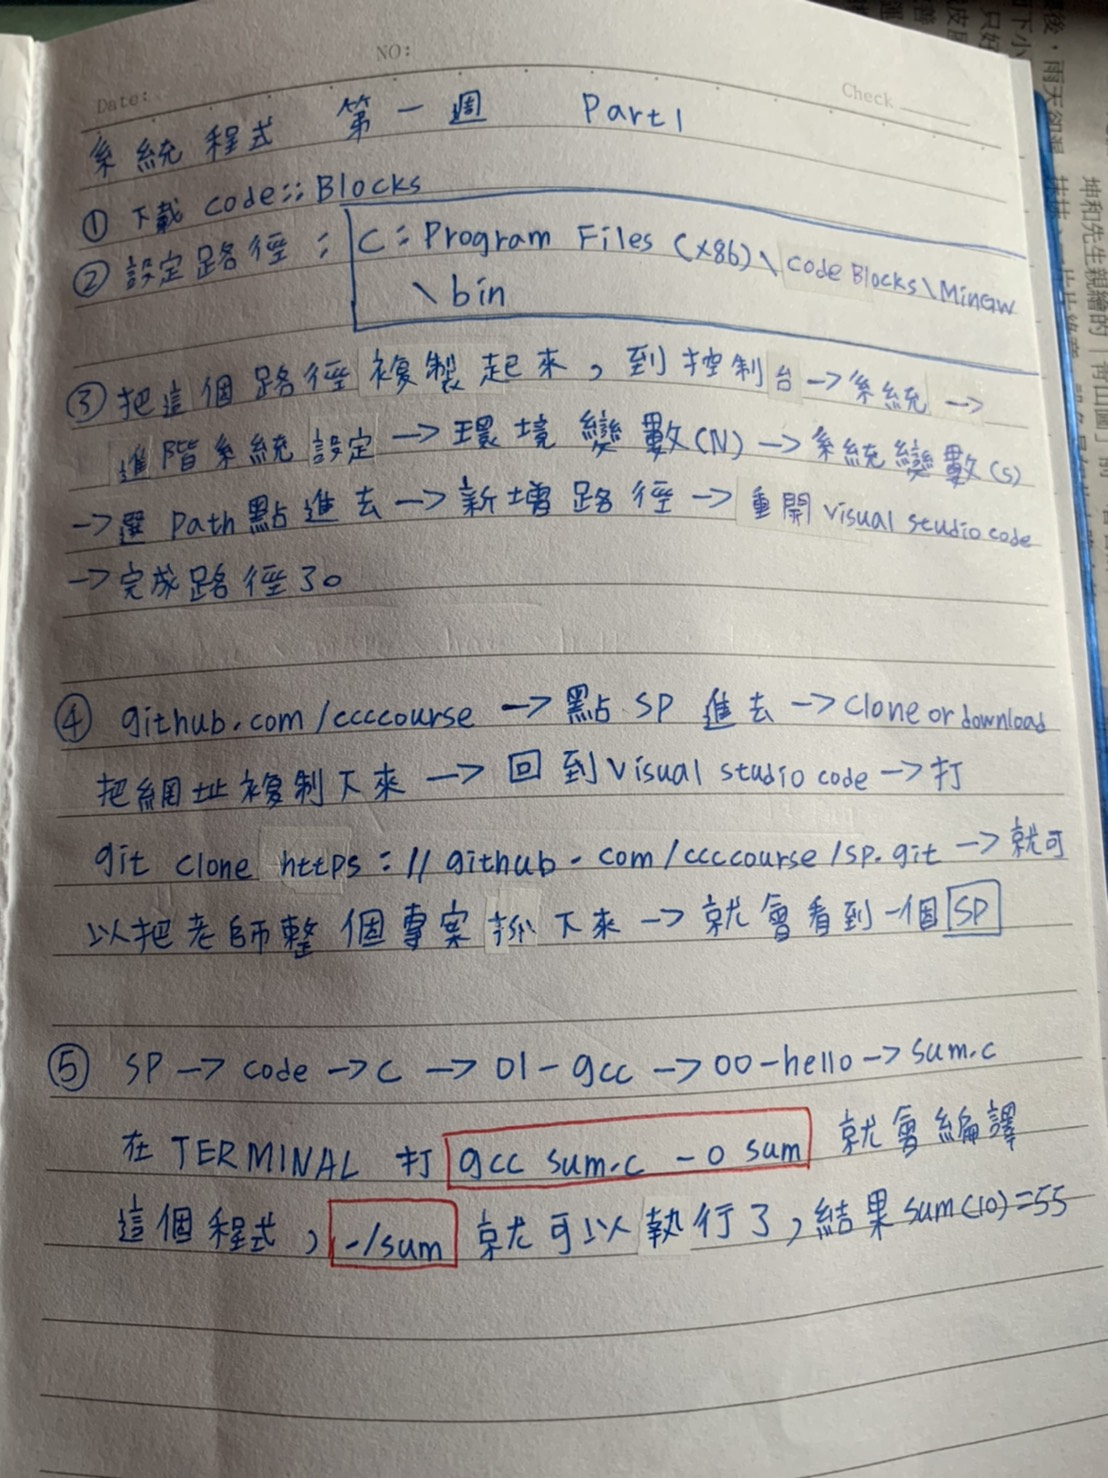 NO:
Date:
Check
系統程式 第一週 Part1
① 下載 code::Blocks
② 設定路徑: C:Program Files (x86)\code Blocks\MinGW
\bin
③ 把這個路徑複製起來,到控制台→系統→
進階系統設定→環境變數(N)→系統變數(S)
→選Path點進去→新增路徑→重開visual studio code
→完成路徑了。
④ github.com/ccccourse→點SP進去→Clone or download
把網址複制下來→回到Visual studio code→打
git clone https://github.com/ccccourse/sp.git→就可
以把老師整個專案 下來→就會看到一個SP
⑤ SP→code→C→01-gcc→00-hello→sum.c
在TERMINAL 打 gcc sum.c -o sum 就會編譯
這個程式,./sum 就可以執行了,結果sum(10)=55